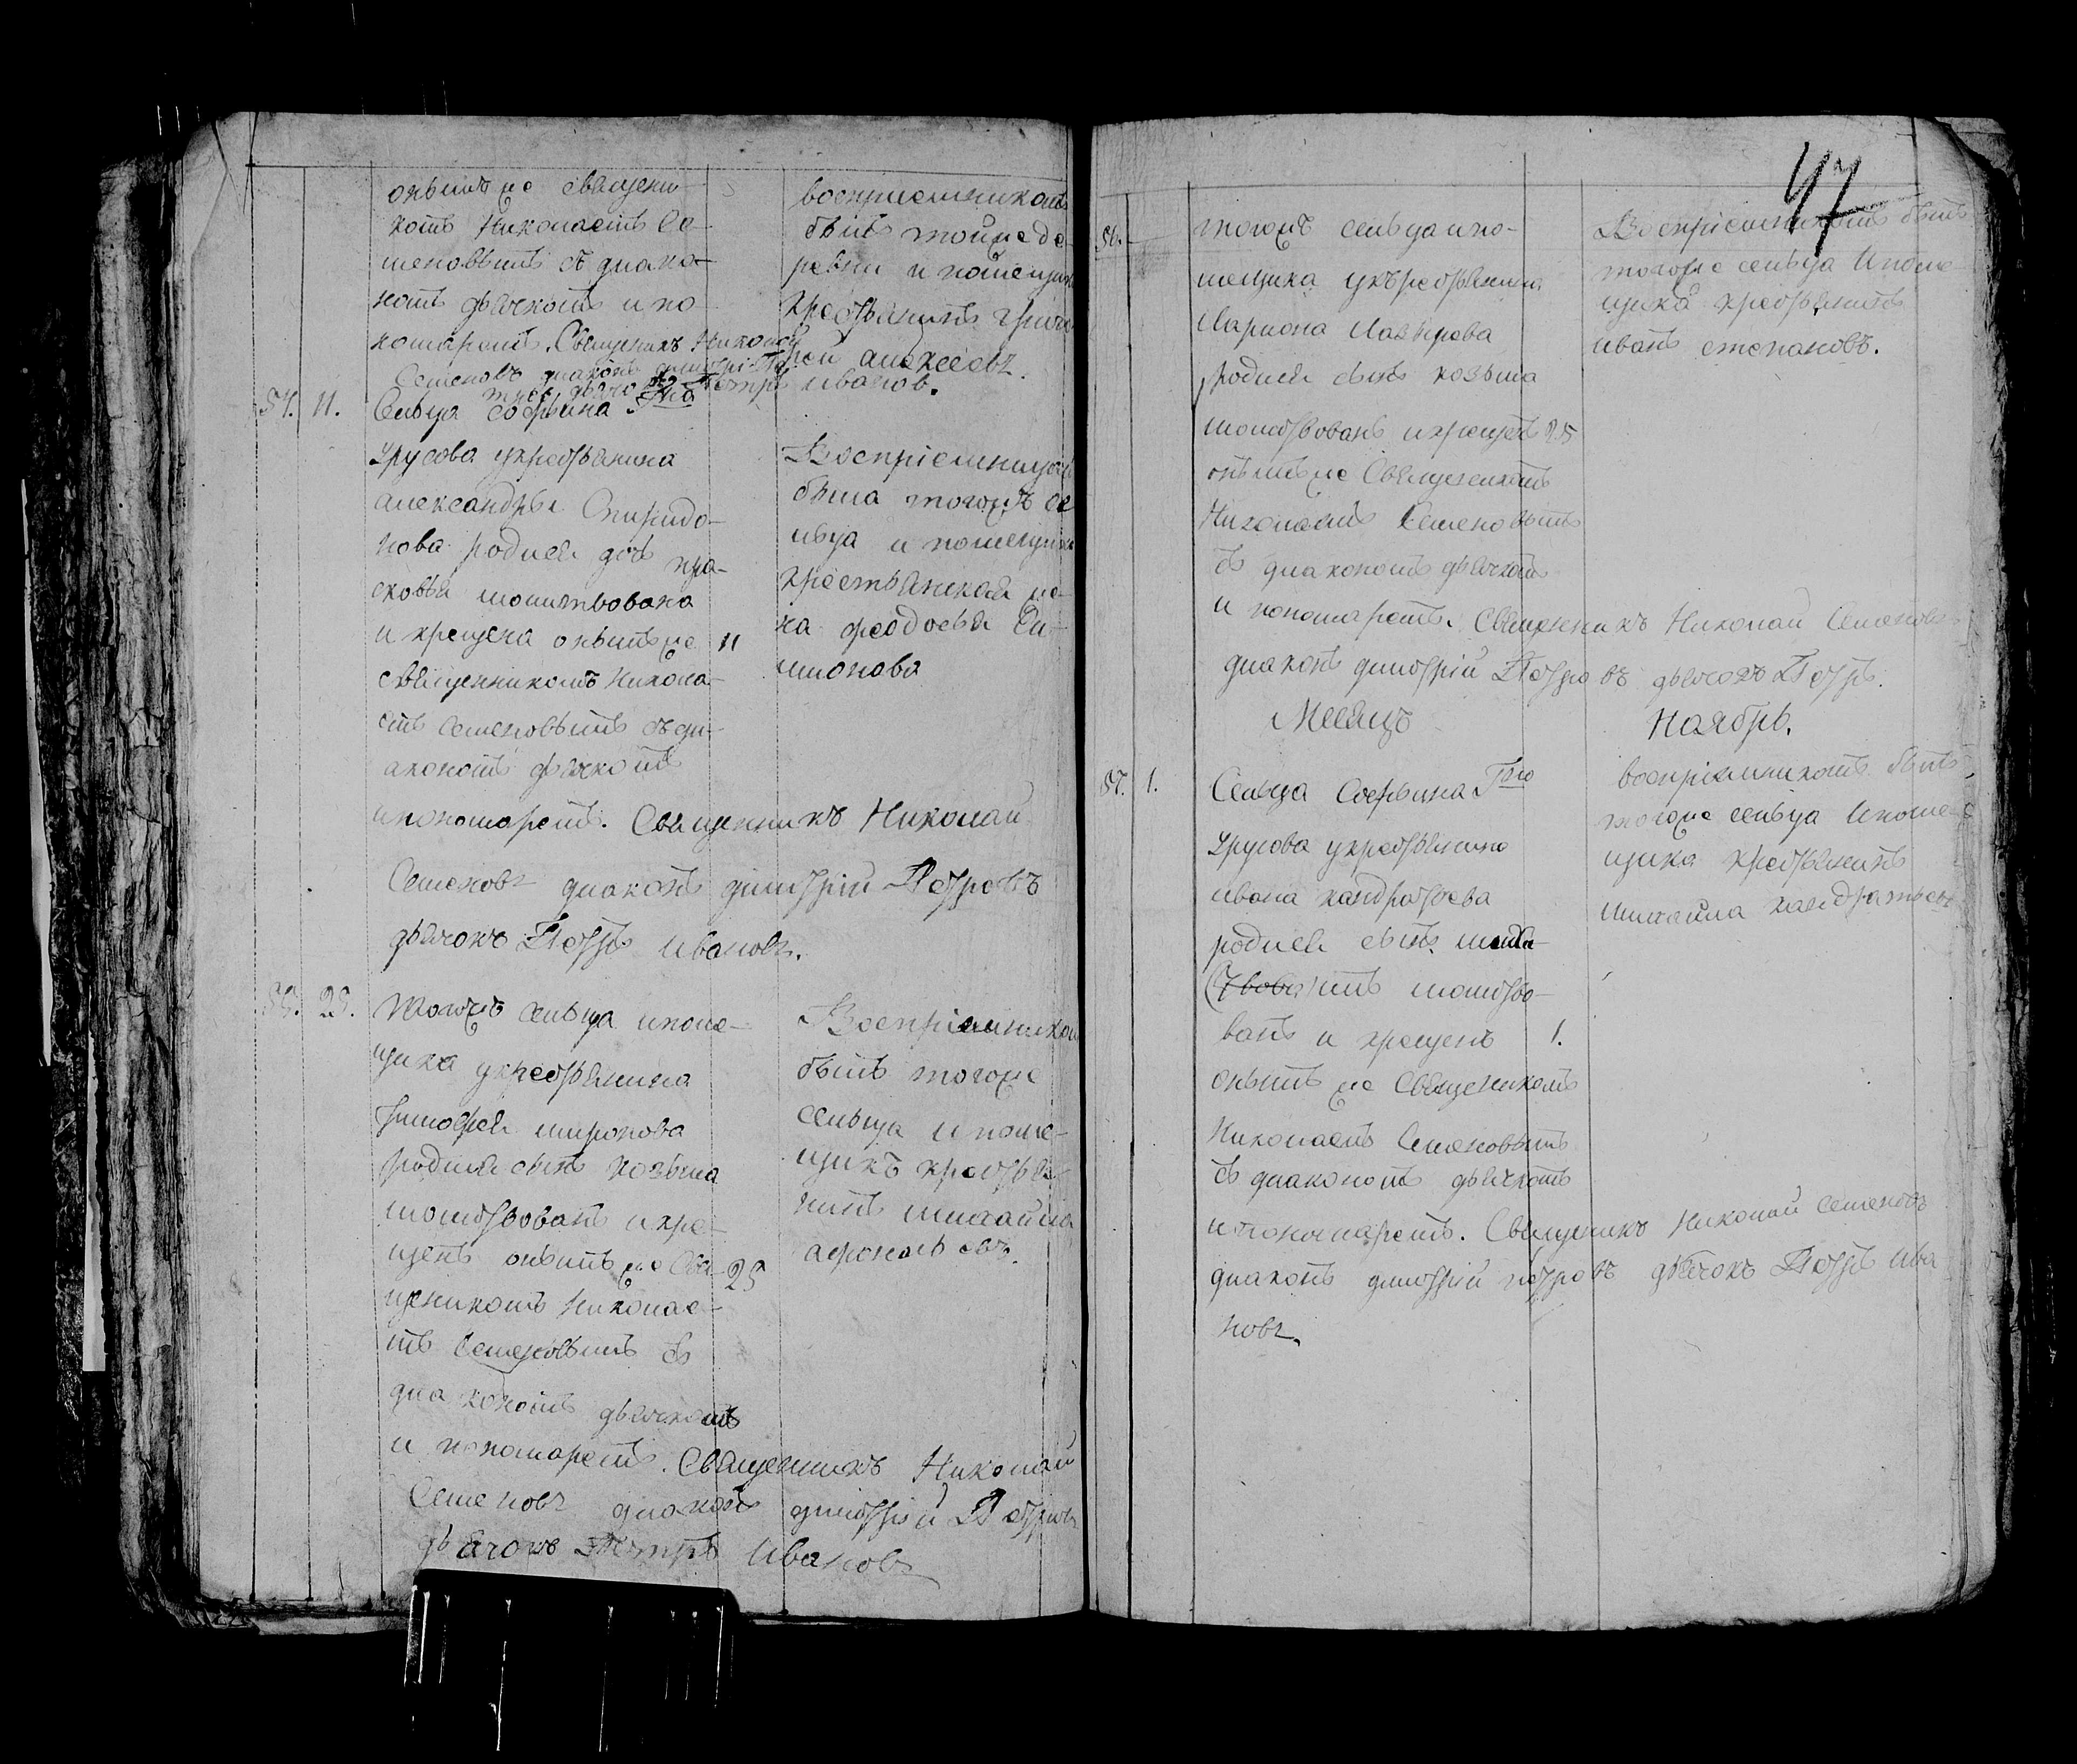 онымъ же священи-
комъ Николаемъ Се-
меновымъ съ диако-
номъ дьячкомъ и по
номаремъ. Священикъ Николай
Семеновъ диаконъ
дьячокъ Петръ Иванов.
воспріемникомъ
былъ тойже де-
ревни и помещика
крестьянинъ григо
рей алексеевъ.
54. 11. Сельца Софьина Гна
Урусова укрестьянина
александры Спиридо-
нова родися дочь пра-
сковья молитвована
и крещена онымъ же 11
священникомъ Никола-
емъ Семеновымъ съ ди-
акономъ дьячкомъ
ипономаремъ. Священникъ Николай
Семеновъ диаконъ димитрій Петровъ
дьячокъ Петръ Ивановъ.
Воспріемницей
была тогожъ се
льца и помещика
крестьянская же-
на феодосья Си-
монова
55. 25. Тогожъ сельца ипоме-
щика укрестьянина
Тимофея миронова
родися сынъ козьма
молитвованъ и кре-
щенъ онымъ же Свя- 25
щеникомъ Николае-
мъ Семеновымъ съ
диакономъ дьячкомъ
и пономаремъ. Священникъ Николай
Семеновъ диаконъ димитрій Петровъ
дьячокъ Петръ Ивановъ
Воспріемником
былъ тогоже
сельца и поме-
щикъ крестья-
нинъ михайла
афонасьевъ.
47
56. тогожъ сельца ипо-
мещика укърестьянина
Лариона Лазырова
родися сынъ козьма
молитвованъ икрещенъ 25
онымъ же Священикомъ
Николаемъ Семеновымъ
съ диакономъ дьячкомъ
и пономаремъ. Священникъ Николай Семеновъ
диаконъ димитрій Петровъ дьячокъ Петръ.
Воспріемникомъ былъ
тогоже сельца Ипоме
щика крестьянинъ
иванъ степановъ.
Месяцъ Ноябрь.
57. 1. Сельца Софьина Гно
Урусова укрестьянина
ивана кандратьева
родися сынъ
молитво-
ванъ и крещенъ 1.
онымъ же Священикомъ
Николаемъ Семеновымъ
съ диакономъ дьячкомъ
ипономаремъ. Священикъ Николай Семеновъ
диаконъ димитрій петровъ дьячокъ Петръ Ива
новъ.
воспріемникомъ былъ
тогоже сельца Ипоме-
щика крестьянинъ
михайла кандратьевъ